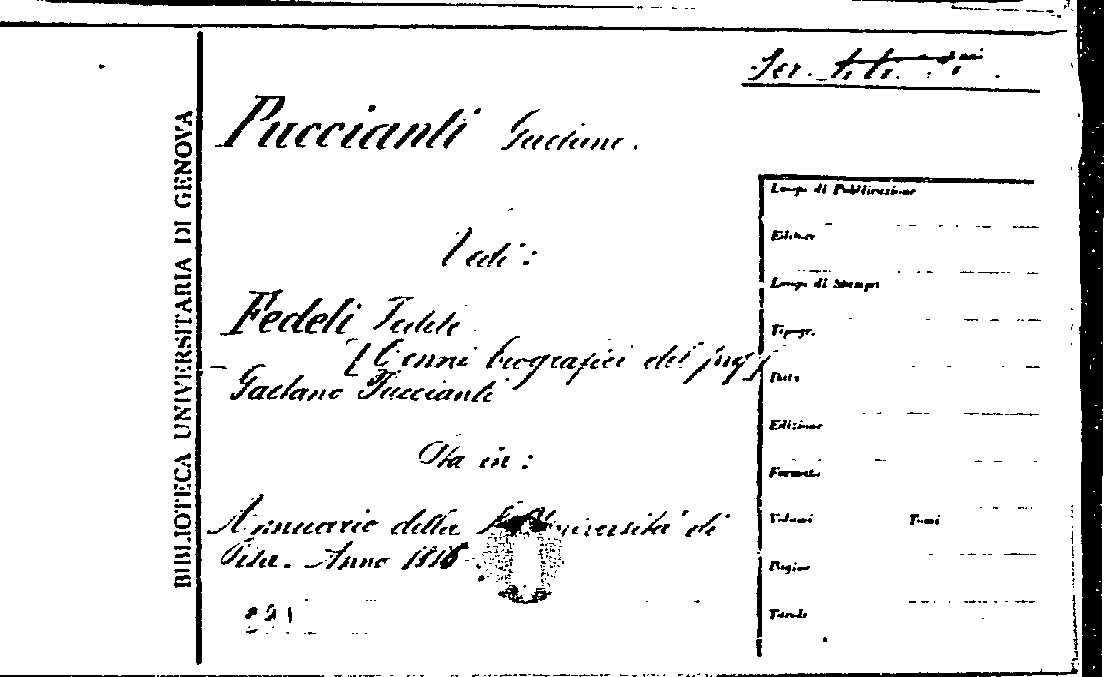 Puccianti Gaetano.
Vedi:
Fedeli Fedele
[Cenni biografici del prof]
Gaetano Puccianti
Sta in:
Annuario della R. Università di
Pisa. Anno
BIBLIOTECA UNIVERSITARIA DI GENOVA
Luogo di Pubblicazione
Editore
Luogo di Stampa
Tipogr.
Data
Edizione
Formato
Volumi Tomi
Pagine
Tavole